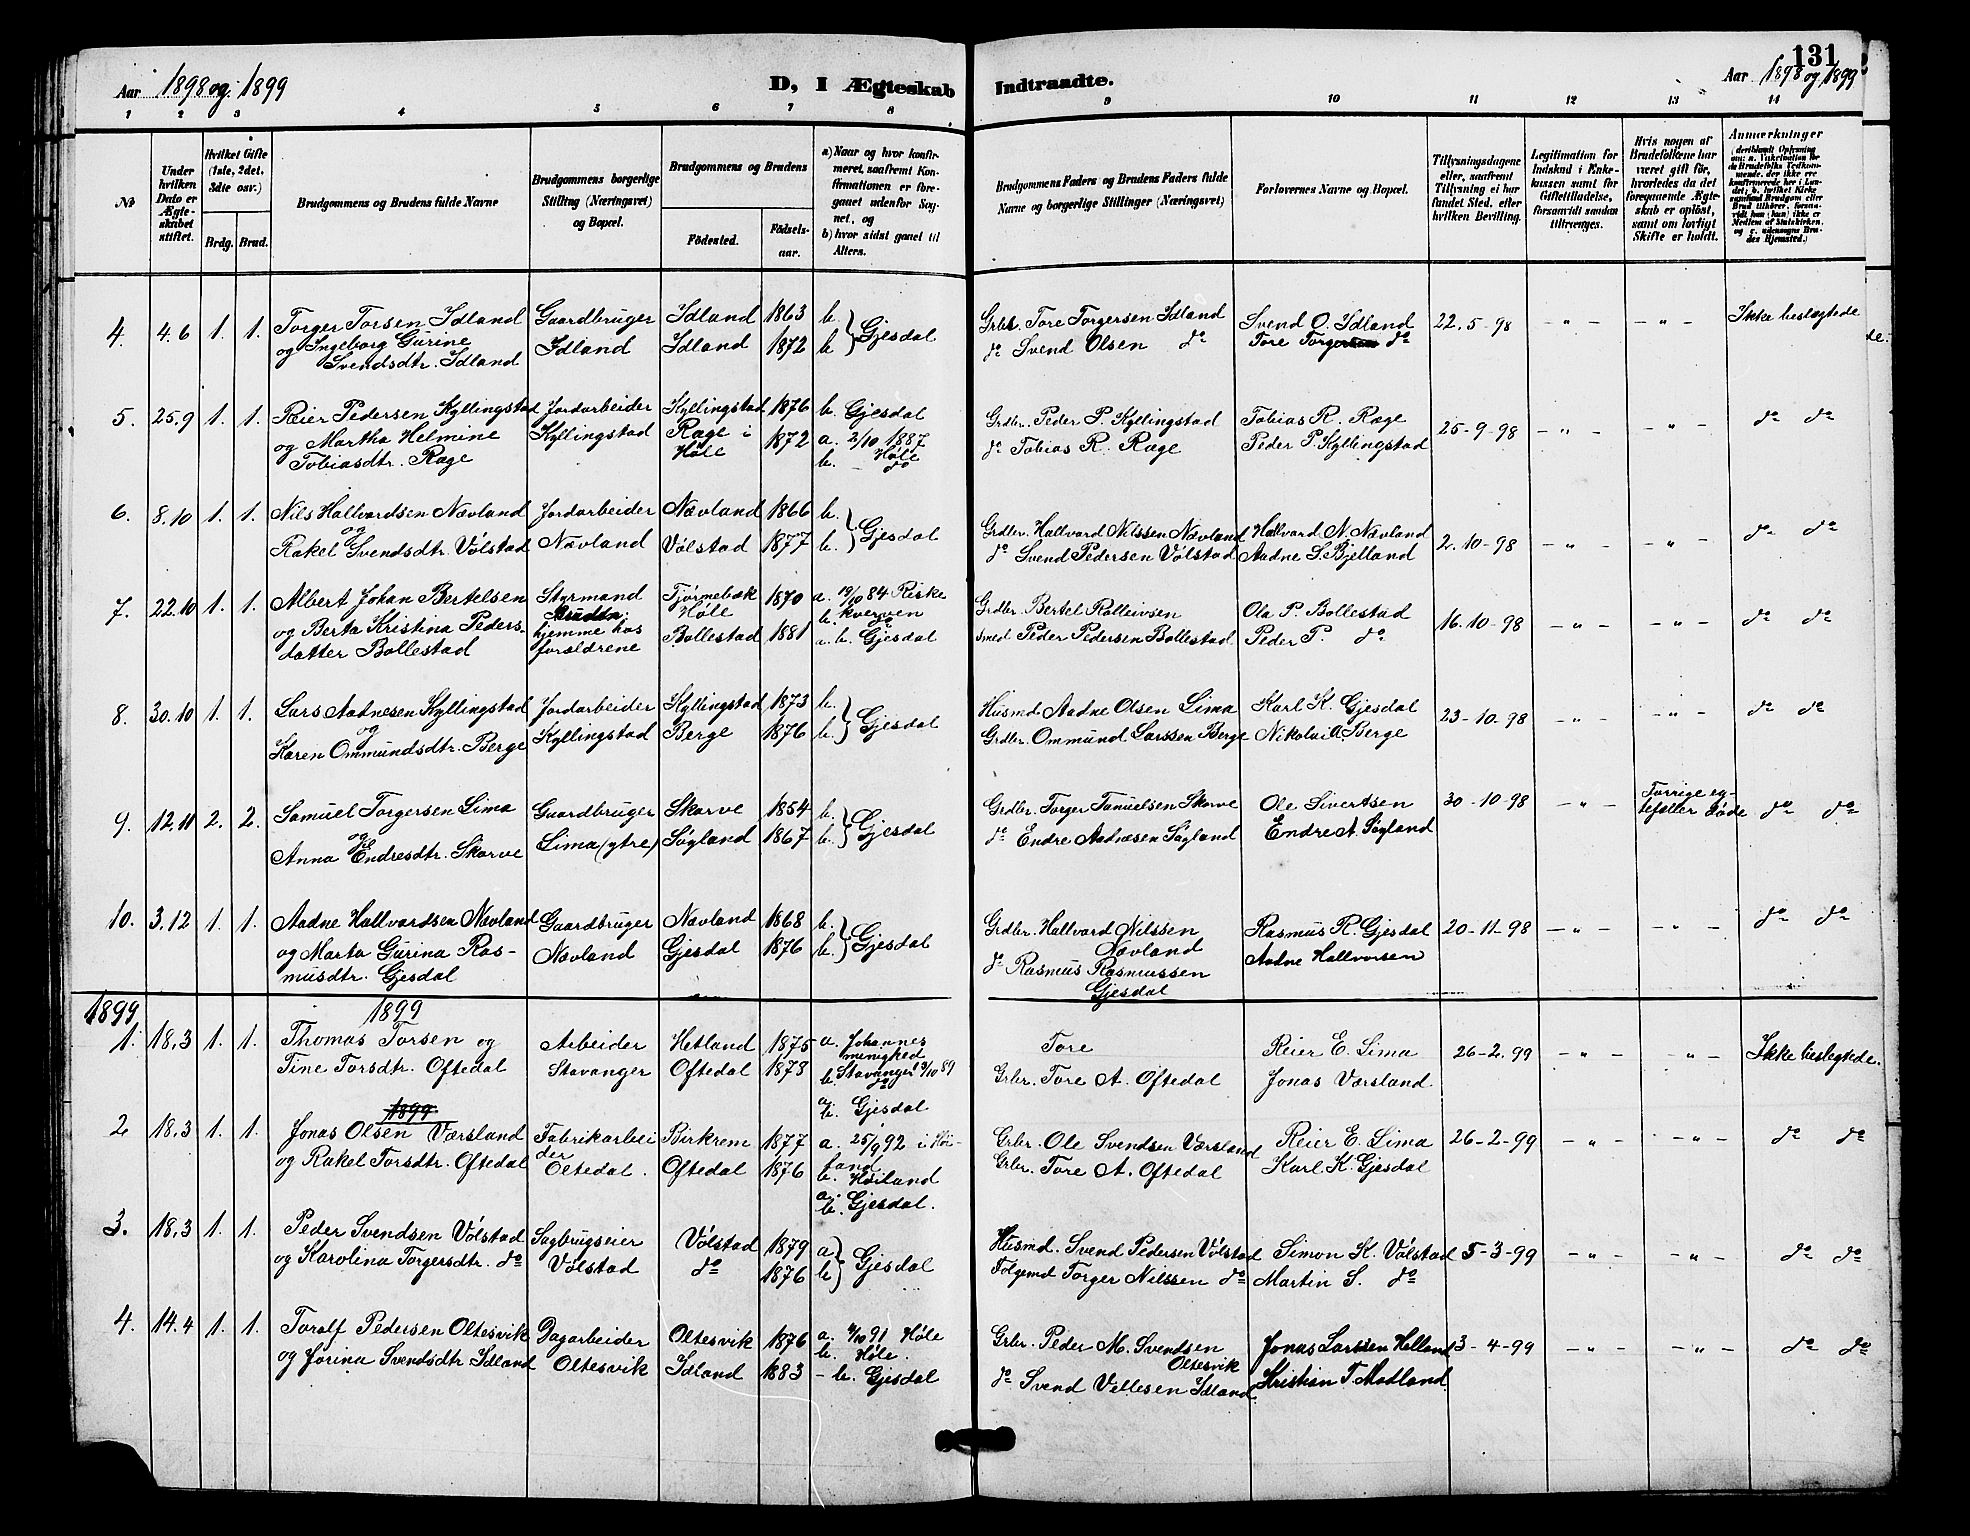 131
Aar 1898 og 1899
D, I Ægteskab Indtraadte.
Aar 1898 og 1899
1 2 3 4 5 6 7 8 9 10 11 12 13 14
№
Under hvilken Dato er Ægteskabet stiftet.
Hvilket Gifte (1ste, 2det, 3die osv.)
Brdg. Brud.
Brudgommens og Brudens fulde Navne
Brudgommens borgerlige Stilling (Næringsvei) og Bopæl.
Brudgommens og Brudens
Fødested. Fødselsaar.
a) Naar og hvor konfirmeret, saafremt Konfirmationen er foregaaet udenfor Sognet, og
b) hvor sidst gaaet til Alters.
Brudgommens Faders og Brudens Faders fulde Navne og borgerlige Stillinger (Næringsvei)
Forlovernes Navne og Bopæl.
Tillysningsdagene eller, saafremt Tillysning ei har fundet Sted, efter hvilken Bevilling.
Legitimation for Indskud i Enkekassen samt for Giftetilladelse, forsaavidt saadan tiltrænges.
Hvis nogen af Brudefolkene har været gift før, hvorledes da det foregaaende Ægteskab er opløst, samt om lovligt Skifte er holdt.
Anmærkninger
4. 4.6 1. 1. Torger Torsen Idland Gaardbruger Idland 1863 b. Gjesdal Grbr. Tore Torgersen Idland Svend O. Idland 22.5-98 -"- -"- Ikke beslægtede
og Ingeborg Gurine Svendsdtr. Idland Idland Idland 1872 b do Svend Olsen do Tore Torgersen do
5. 25.9 1. 1. Reier Pedersen Kyllingstad Jordarbeider Kyllingstad 1876 b. Gjesdal Grdbr. Peder P. Kyllingstad Tobias R. Rage 25-9-98 -"- -"- do do
og Martha Helmine Tobiasdtr. Rage Kyllingstad Rage i Høle 1872 a. 2/10 1887 Høle b. - do do Tobias R. Rage Peder P. Kyllingstad
6. 8.10 1. 1. Nils Hallvardsen Nævland Jordarbeider Nævland 1866 b. Gjesdal Grdbr. Hallvard Nilssen Nævland Hallvard N. Nævland 2.10-98 -"- -"- do do
og Rakel Svendsdtr. Vølstad Nævland Vølstad 1877 b. do Svend Pedersen Vølstad Aadne S. Bjelland
7. 22.10 1. 1. Albert Johan Bertelsen Styrmand Tjørmebæk Høle 1870 a. 19/10 84 Riskekverven b. do Grdbr. Bertel Rolleivsen Ola P. Bollestad 16.10-98 -"- -"- do do
og Berta Kristina Pedersdatter Bollestad hjemme hos forældrene Bollestad 1881 a. b. Gjesdal Smed Peder Pedersen Bollestad Peder P. do
8. 30.10 1. 1. Lars Aadnesen Kyllingstad Jordarbeider Kyllingstad 1873 b. Gjesdal Husmd. Aadne Olsen Lima Karl K. Gjesdal 23-10-98 -"- -"- do do
og Karen Ommundsdtr. Berge Kyllingstad Berge 1876 b. Grdbr. Ommund Larssen Berge Nikolai A. Berge
9. 12.11 2. 2. Samuel Torgersen Lima Gaardbruger Skarve 1854 b. Gjesdal Grdbr. Torger Samuelsen Skarve Ole Sivertsen 30-10-98 -"- Forrige egtefæller døde do do
og Anna Endresdtr. Skarve Lima (ytre) Søyland 1867 b. do Endre Aadnesen Søyland Endre A. Søyland
10. 3.12 1. 1. Aadne Hallvardsen Nævland Gaardbruger Nævland 1868 b. Gjesdal Grdbr. Hallvard Nilssen Nævland Rasmus R. Gjesdal 20-11-98 -"- -"- do do
og Marta Gurina Rasmusdtr. Gjesdal Nævland Gjesdal 1876 b. do Rasmus Rasmussen Gjesdal Aadne Hallvorsen
1899 1899
1. 18.3 1. 1. Thomas Torsen og Arbeider Hetland 1875 a. Johannes menighed Stavanger 5/10 89 b. do Tore Reier E. Lima 26-2.99 -"- -"- Ikke beslegtede.
Tine Torsdtr. Oftedal Stavanger Oftedal 1873 a. b. Gjesdal Grbr. Tore A. Oftedal Jonas Værsland
1899
2 18.3 1. 1. Jonas Olsen Værsland Fabrikarbeider Birkrem 1877 a. 25/9 92 i Høiland b. Høiland Grbr. Ole Svendsen Værsland Reier E. Lima 26-2-99 -"- -"- do do
og Rakel Torsdtr. Oftedal Oltedal. Oftedal 1876 a. b. Gjesdal. Grbr. Tore A. Oftedal Karl K. Gjesdal
3. 18.3 1. 1. Peder Svendsen Vølstad Sagbrugseier Vølstad 1879 a. Gjesdal Husmd. Svend Pedersen Vølstad Simon K. Vølstad 5-3-99 -"- -"- do do
og Karolina Torgersdtr. do Vølstad do 1876 b Følgemd Torger Nilssen do Martin S. do
4. 14.4 1. 1. Toralf Pedersen Oltesvik Dagarbeider Oltesvik 1876 a. 4/10 91 Høle b. Høle. Grbr. Peder M. Svendsen Oltesvik Jonas Larssen Helland 3-4-99 -"- -"- do do
og Jorina Svendsdtr Idland Oltesvik Idland 1883 - b. Gjesdal do Svend Vellesen Idland Kristian T. Madland.